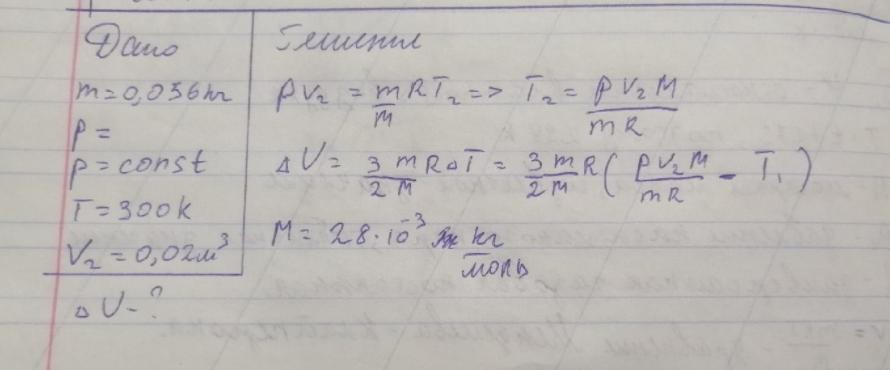 Дано
Решение
m = 0,056 кг
p =
p = const
T = 300 k
V₂ = 0,02 м³
ΔU - ?
pV₂ = m/M RT₂ => T₂ = pV₂M/mR
ΔU = 3/2 m/M RΔT = 3/2 m/M R (pV₂M/mR - T₁)
M = 28·10⁻³ кг/моль